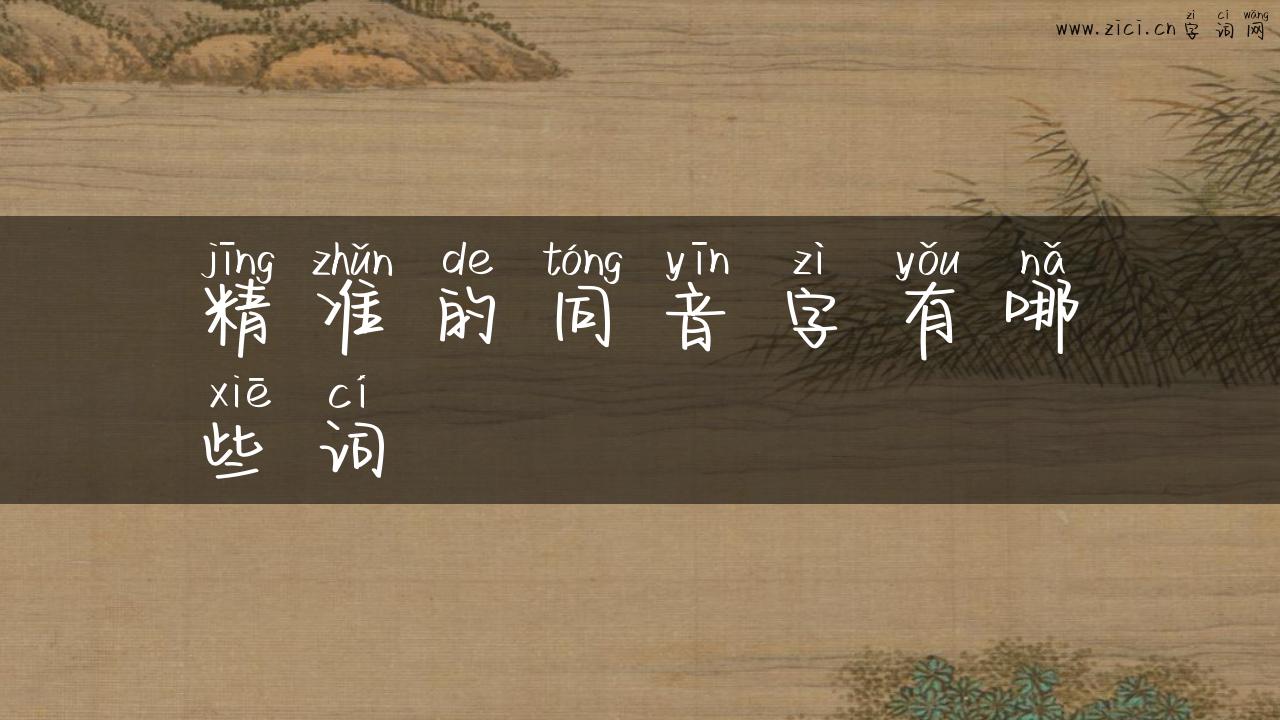 zì cí wǎng
www.zici.cn字词网
jīng zhǔn de tóng yīn zì yǒu nǎ
精准的同音字有哪
xiē cí
些词